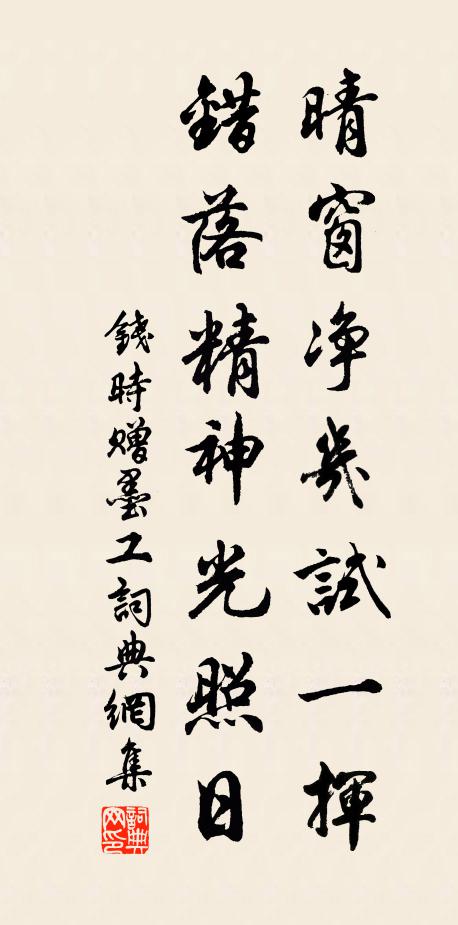 晴窗净幾試一揮
錯落精神光照日
錢時贈墨工詞典網集
詞典網印